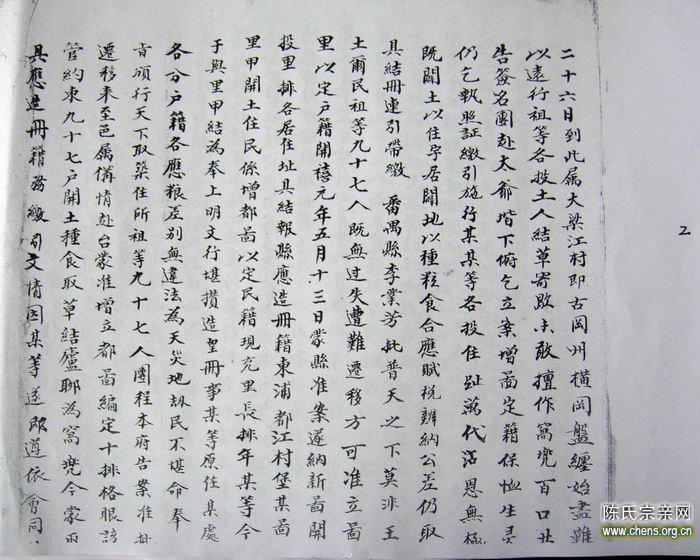 二十六日到此属大梁江村即古冈州横冈盤纏始盡難
以遠行祖等各投土人結草寄歇未敢擅作窩兜百口
告簽名團赴太爺堦下俯乞立案增啚定籍保恤生灵
仍乞執照証繳引施行某某等各投住趾萬代沾恩無極
既開土以住卒居闢地以種粒食合應賦稅辨納公差仍取
具結冊連引帶繳番禺縣李業芳批普天之下莫非王
土爾民祖等九十七人既無过失遭難遷移方可准立啚
里以定戸籍開禧元年五月十三日蒙縣准案遂納新啚開
投里排各居住址具結報縣應造冊籍東浦都江村堡某啚
里甲開土住民係增都啚以定民籍現充里長排年某等今
于與里甲結為奉上明文行堪攅造皇冊事某等原住某處
各分戸籍各應粮差别無違法為天災地刼民不堪命奉
旨頒行天下取築住所祖等九十七人團程本府告案准批
遷移来至邑属備情赴台蒙准增立都啚編定十排格眼諸
管約束九十七户開土種食取草結廬聊為窩兜今蒙
具應造冊籍繳司文情因某等遂即遵依會同
2
陈氏宗亲网
www.chens.org.cn